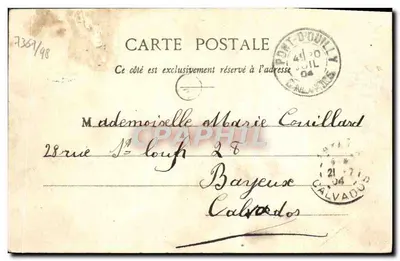 7369/98
CARTE POSTALE
Ce côté est exclusivement réservé à l'adresse
PONT-D'OUILLY
JUIL
04
CALVADOS
Mademoiselle Marie Couillard
28 rue St Loup 28
Bayeux
Calvados
21 7
04
CALVADOS
CPAPHIL.COM